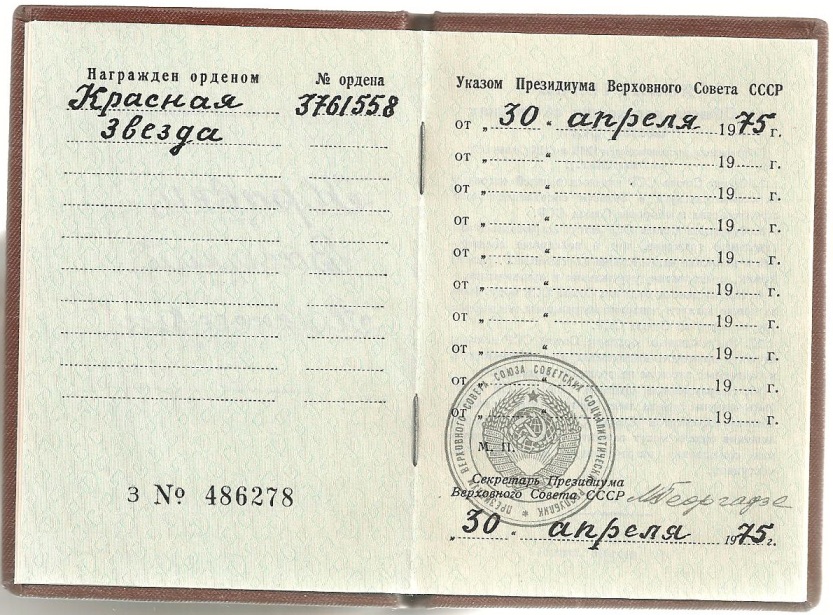 Награжден орденом № ордена
Красная 3761558
Звезда
З № 486278
Указом Президиума Верховного Совета СССР
от „ 30 “ апреля 1975 г.
от „ “ 19 г.
от „ “ 19 г.
от „ “ 19 г.
от „ “ 19 г.
от „ “ 19 г.
от „ “ 19 г.
от „ “ 19 г.
от „ “ 19 г.
от „ “ 19 г.
ПРЕЗИДИУМ ВЕРХОВНОГО СОВЕТА СОЮЗА СОВЕТСКИХ СОЦИАЛИСТИЧЕСКИХ РЕСПУБЛИК
М. П.
Секретарь Президиума
Верховного Совета СССР М. Георгадзе
„ 30 “ апреля 1975 г.